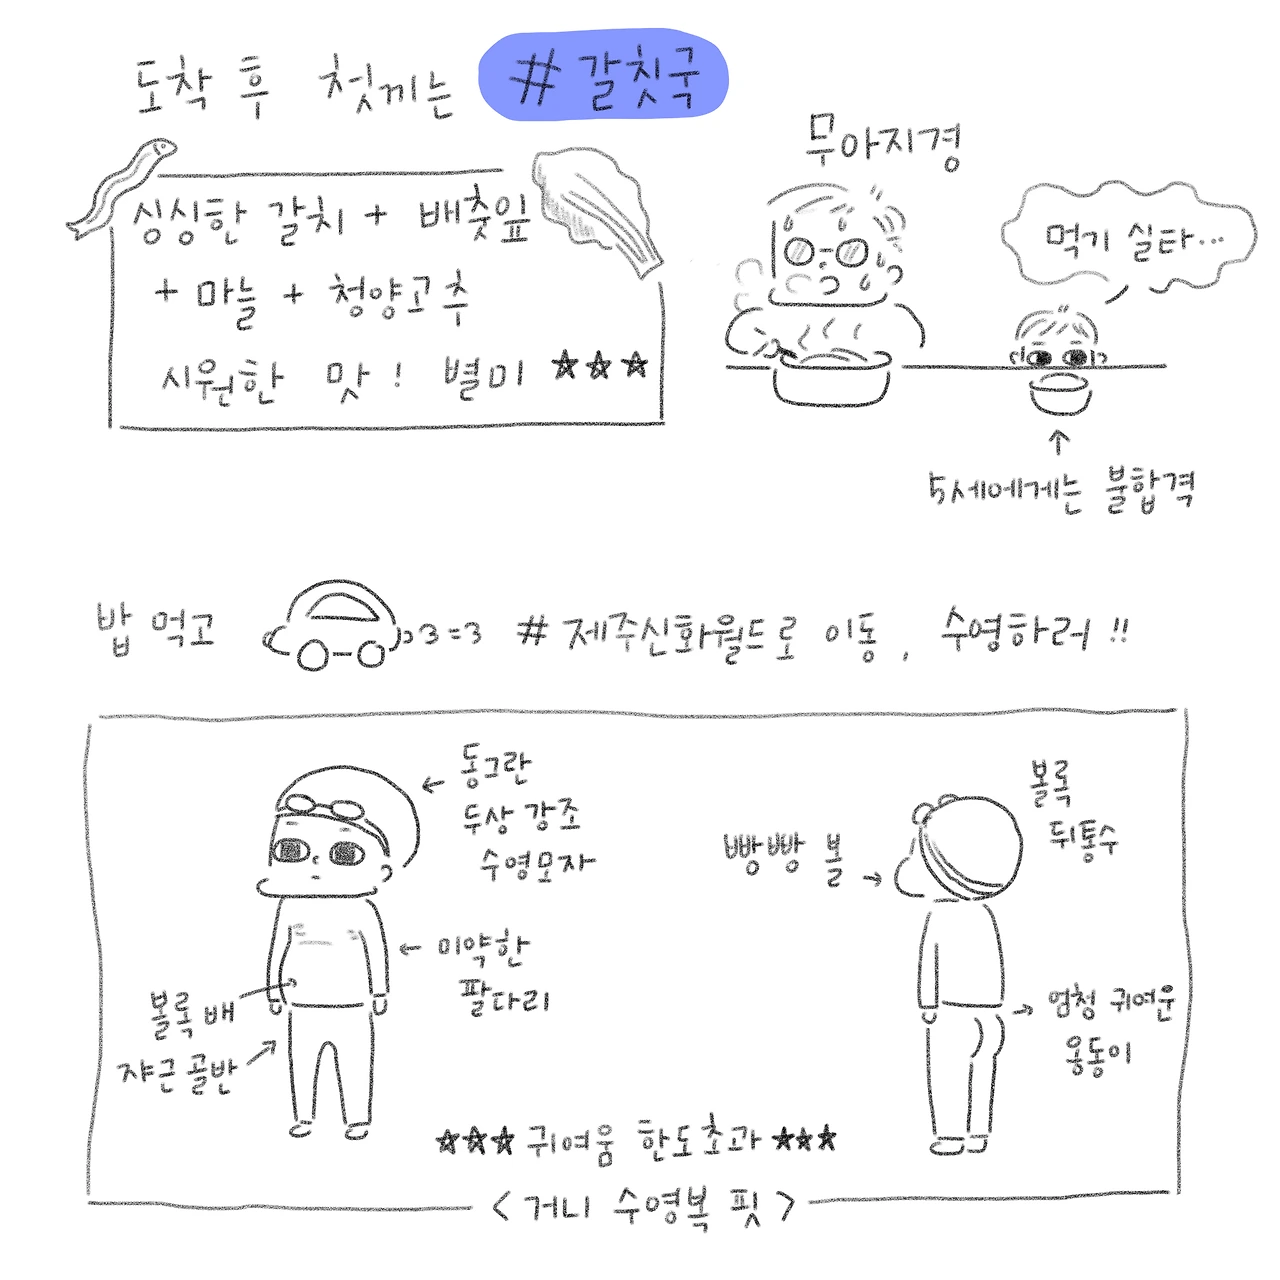 도착 후 첫끼는 #갈칫국
싱싱한 갈치 + 배춧잎
+ 마늘 + 청양고추
시원한 맛! 별미 ★★★
무아지경
먹기 실타...
5세에게는 불합격
밥 먹고 3=3 #제주신화월드로 이동, 수영하러!!
동그란
두상 강조
수영모자
미약한
팔다리
볼록 배
쟈근 골반
볼록
뒤통수
빵빵 볼
엄청 귀여운
웅동이
★★★ 귀여움 한도초과 ★★★
<거니 수영복 핏>